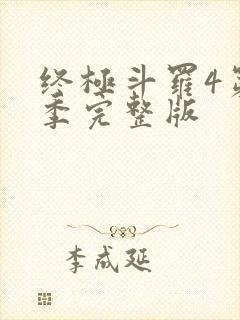 终极斗罗4第
季完整版
李成延